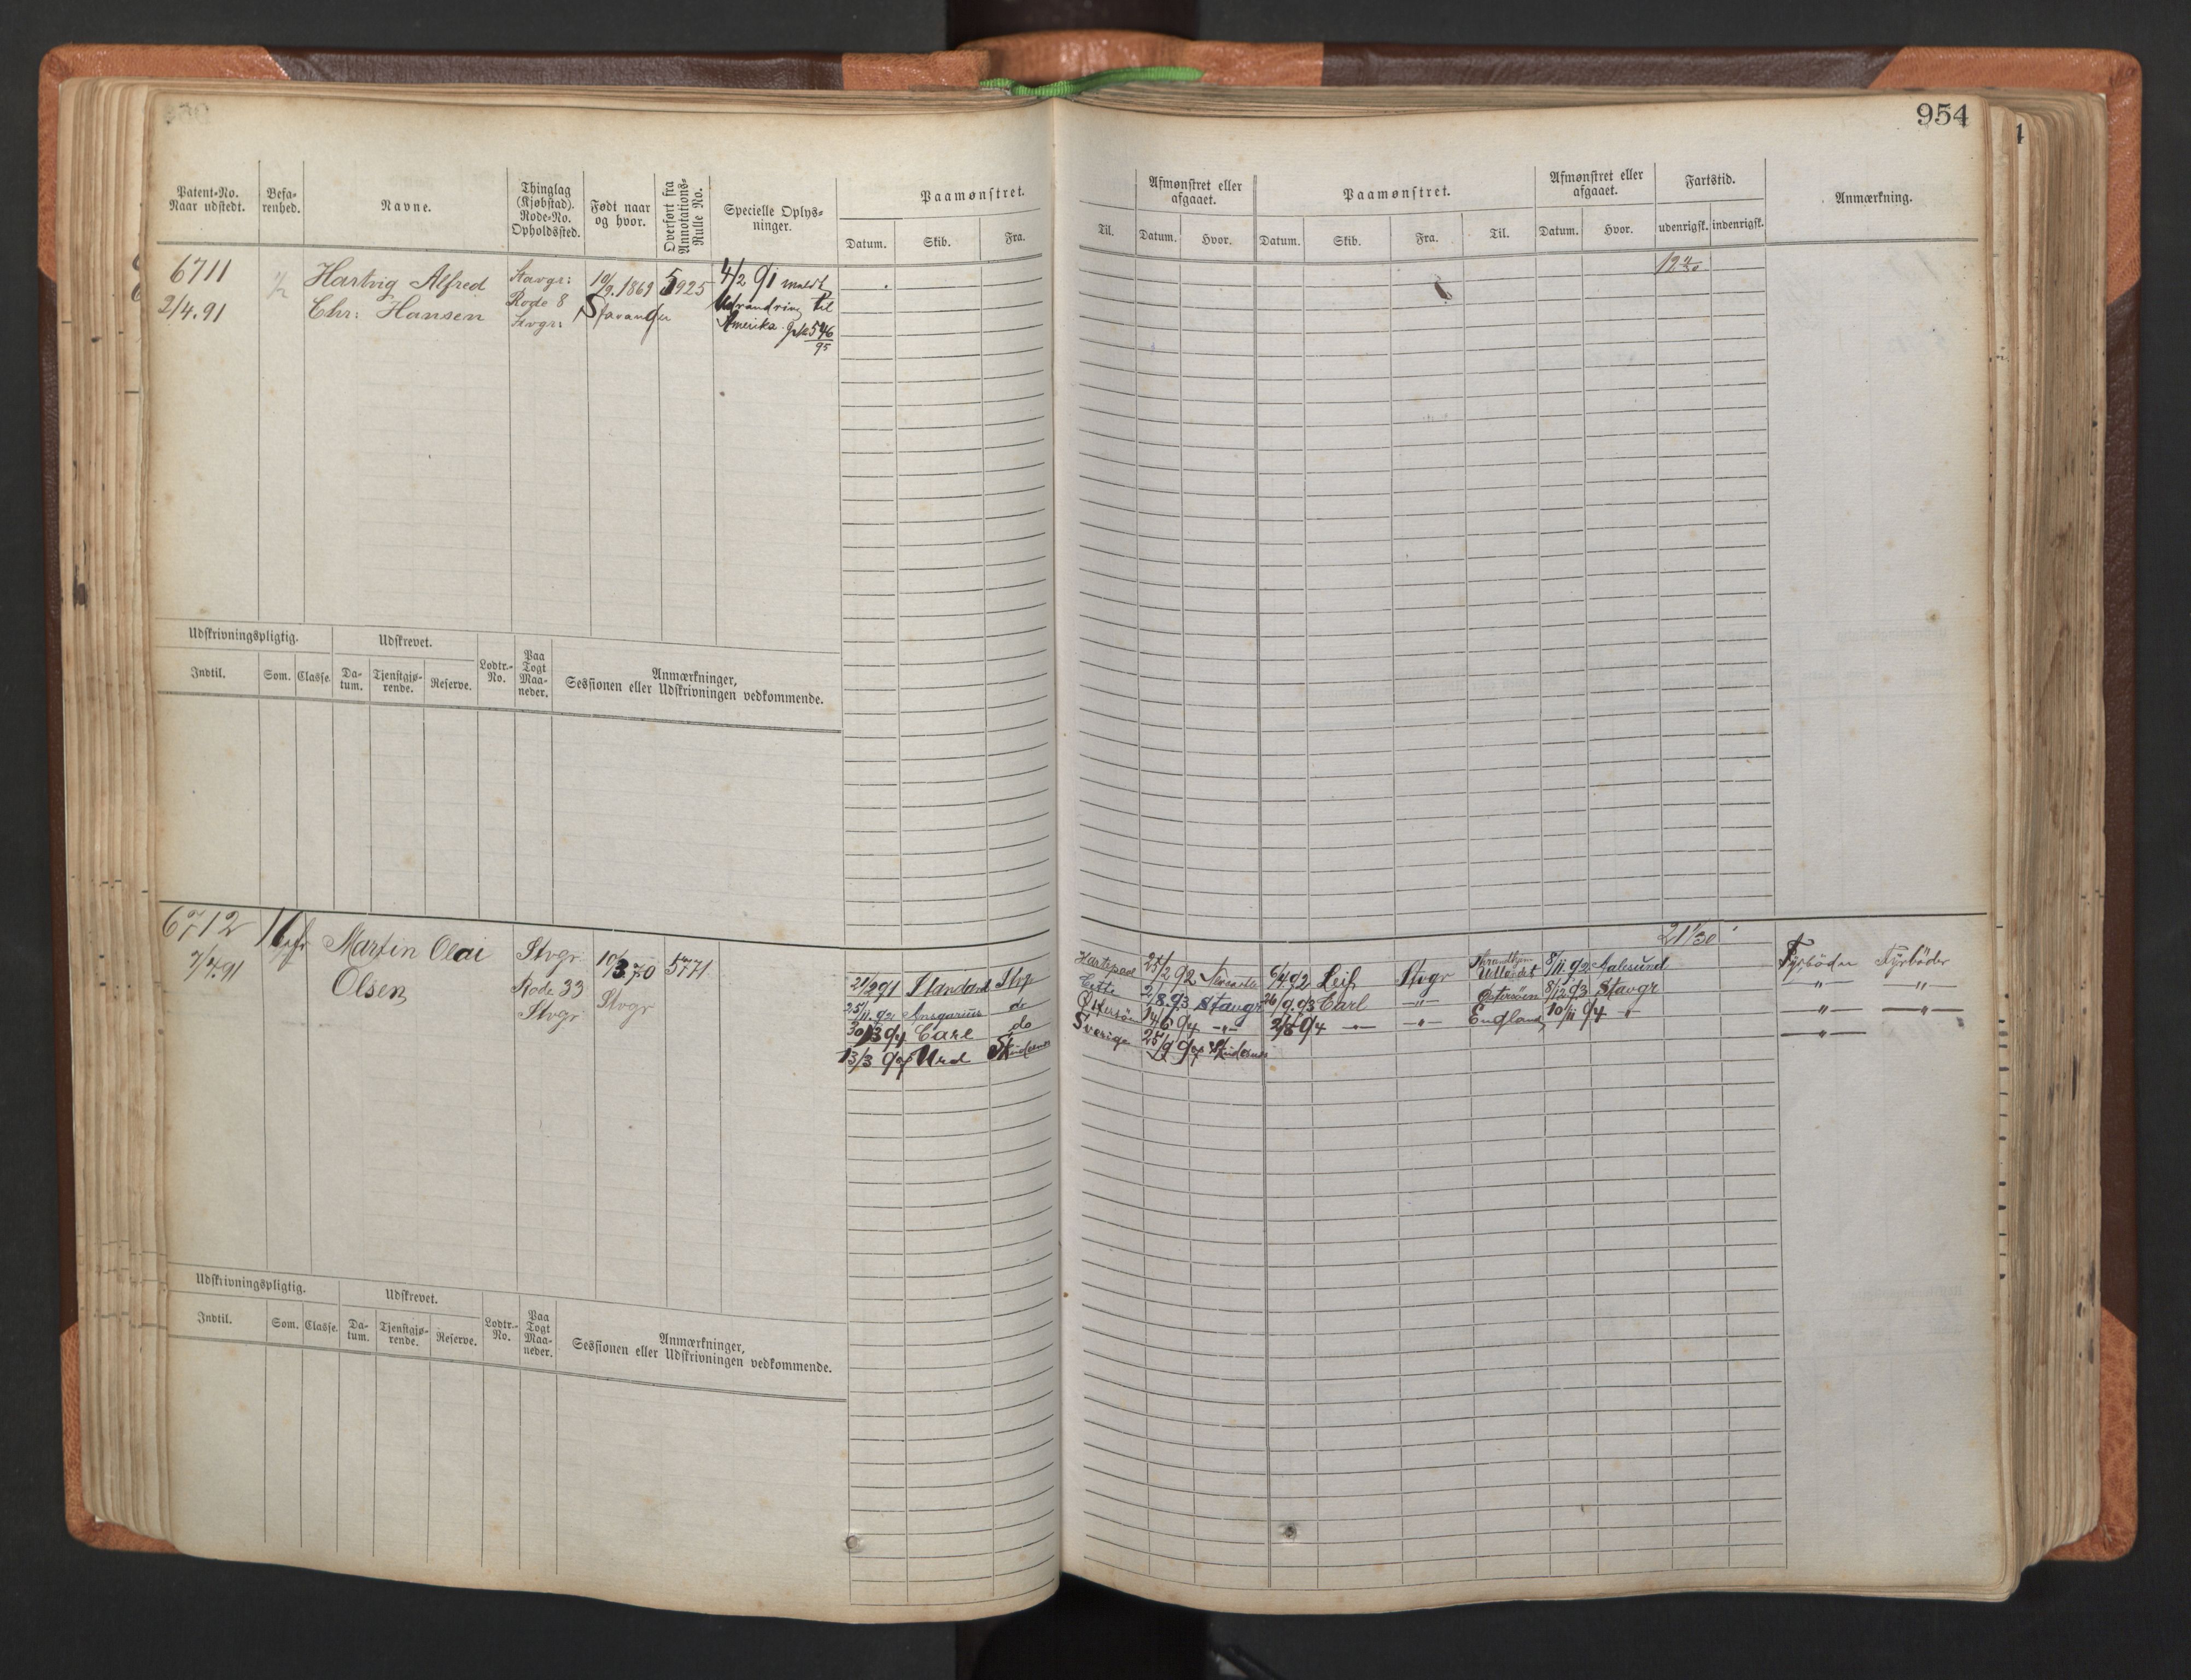 954
Patent-No. Naar udstedt.
Befarenhed.
Navne.
Thinglag (Kjøbstad). Rode-No. Opholdssted.
Født naar og hvor.
Overført fra Annotations-Rulle No.
Specielle Oplysninger.
Paamønstret.
Datum. Skib. Fra.
Til.
Afmønstret eller afgaaet.
Datum. Hvor.
Paamønstret.
Datum. Skib. Fra. Til.
Afmønstret eller afgaaet.
Datum. Hvor.
Fartstid.
udenrigsk. indenrigsk.
Anmærkning.
6711 Hartvig Alfred Stavgr: 1869 5925 4/2 91
2/4.91 Chr: Hansen Rode 8 Stavanger Udvandring til
Stvgr: Amerika 546
95
Udskrivningspligtig. Udskrevet. Lodtr.-No. Paa Togt Maaneder. Anmærkninger, Sessionen eller Udskrivningen vedkommende.
Indtil. Som. Classe. Datum. Tjenstgjørende. Reserve.
6712 Martin Olai Stvgr 10/3 70 5771 21 1/30
7/4.91 Olsen Rode 33 Stvgr
Stvgr
21/2 91 Standard 25/2 92 6/4 92 Leif Stvgr 8/11.92 Aalesund Fyrböder Fyrböder
25/11.92 Ansgarius do 2/8.93 Stavgr 26/9.93 Carl —"— Östersöen 8/12 93 Stavgr —"— —"—
30/3 94 Carl do Östersöen 14/6 94 —"— —"— —"— England 10/11 94 " —"— —"—
13/3 95 Urd Skudesnes Sverige 25/9 95 Skudesnes —"—
Udskrivningspligtig. Udskrevet. Lodtr.-No. Paa Togt Maaneder. Anmærkninger, Sessionen eller Udskrivningen vedkommende.
Indtil. Som. Classe. Datum. Tjenstgjørende. Reserve.